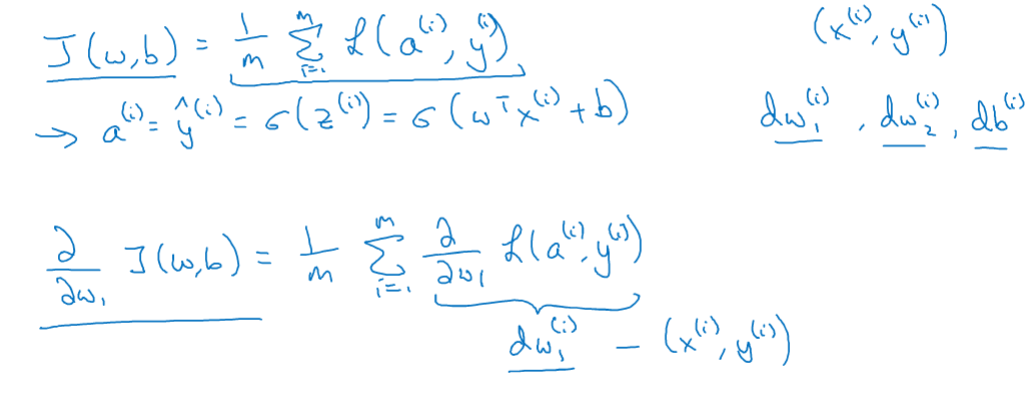 J(w,b) = 1/m Σ_{i=1}^{m} ℒ(a^{(i)}, y^{(i)}) (x^{(i)}, y^{(i)})
→ a^{(i)} = ŷ^{(i)} = σ(z^{(i)}) = σ(w^T x^{(i)} + b) dw_1^{(i)}, dw_2^{(i)}, db^{(i)}
∂/∂w_1 J(w,b) = 1/m Σ_{i=1}^{m} ∂/∂w_1 ℒ(a^{(i)}, y^{(i)})
dw_1^{(i)} – (x^{(i)}, y^{(i)})